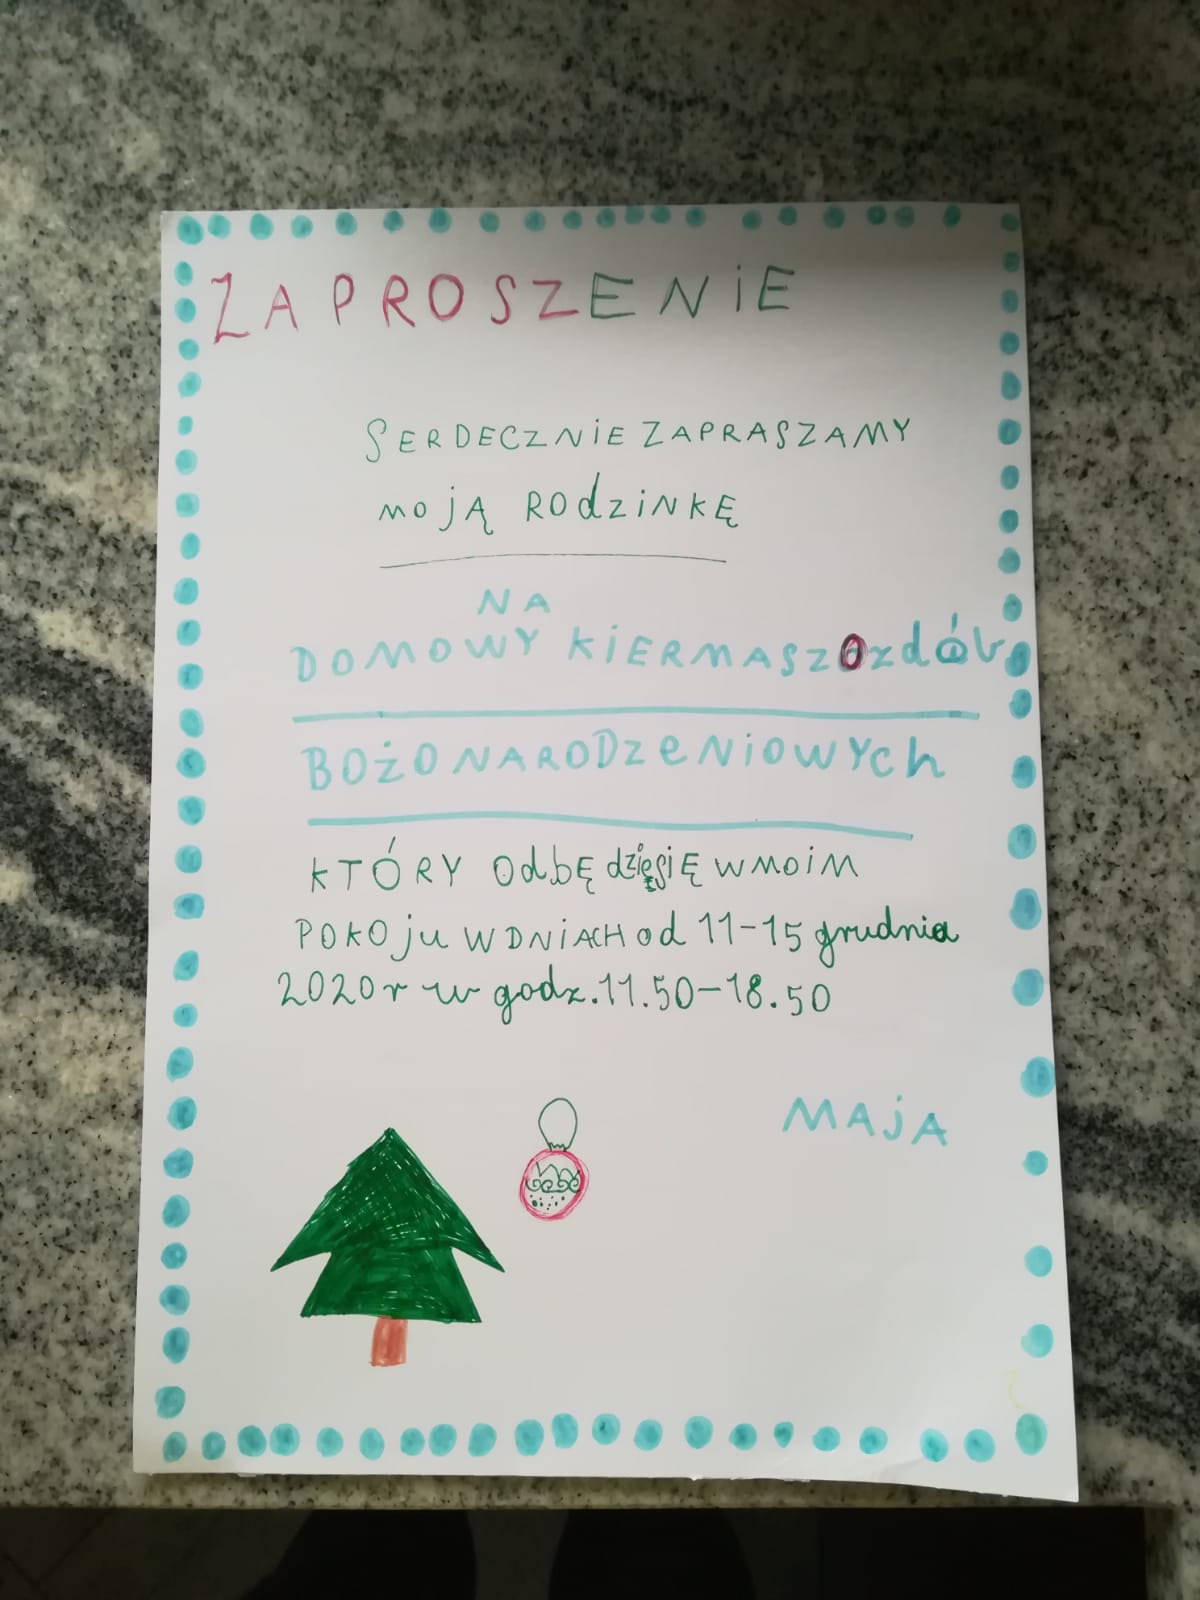 ZAPROSZENIE
SERDECZNIE ZAPRASZAMY
MOJĄ RODZINKĘ
NA
DOMOWY KIERMASZ OZDÓB
BOŻONARODZENIOWYCH
KTÓRY ODBĘdzie SIĘ W MOIM
POKOJU W DNIACH od 11-15 grudnia
2020r w godz.11.50-18.50
MAJA